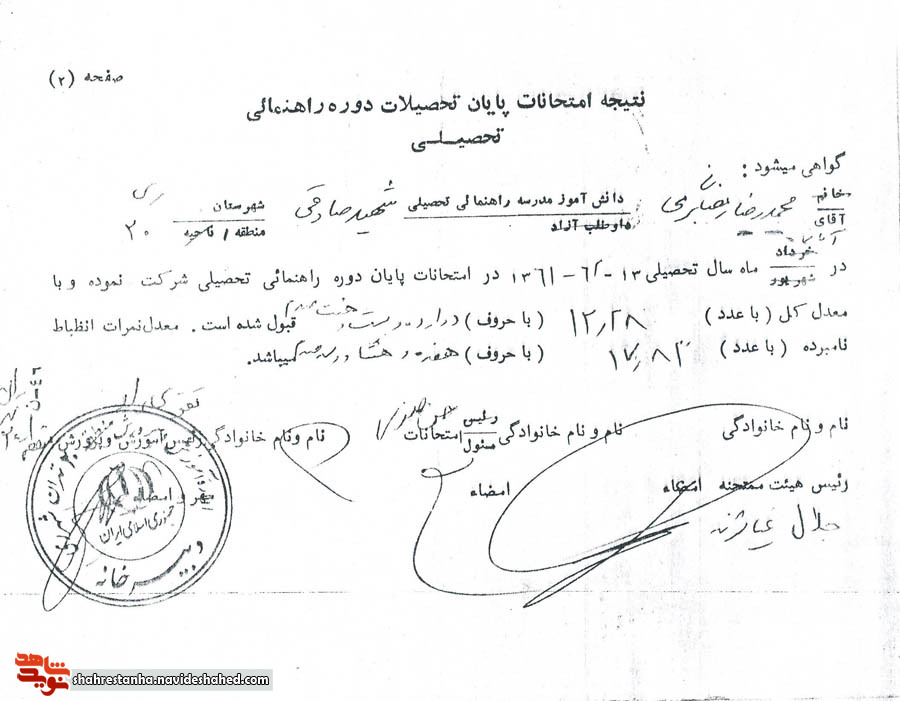 صفحه (۲)
نتیجه امتحانات پایان تحصیلات دوره راهنمائی
تحصیلی
گواهی میشود :
خانم
آقای
محمدرضا
دانش آموز مدرسه راهنمائی تحصیلی
داوطلب آزاد
شهید صادقی
شهرستان ری
منطقه / ناحیه ۲۰
در خرداد
شهریور
ماه سال تحصیلی ۱۳ - ۶۰ - ۱۳۶۱ در امتحانات پایان دوره راهنمائی تحصیلی شرکت نموده و با
معدل کل (با عدد) ۱۲٫۲۸ (با حروف) دوازده و بیست و هشت صدم قبول شده است . معدل نمرات انظباط
نامبرده (با عدد) ۱۷٫۸۲ (با حروف) هفده و هشتاد و صدم میباشد.
نام و نام خانوادگی
نام و نام خانوادگی
رئیس
مسئول
امتحانات
نام و نام خانوادگی رئیس آموزش و پرورش
رئیس هیئت ممتحنه امضاء
امضاء
مهر و امضاء
جلال
جمهوری اسلامی ایران
دبیرخانه
شاهد
نوید
shahrestanha.navideshahed.com